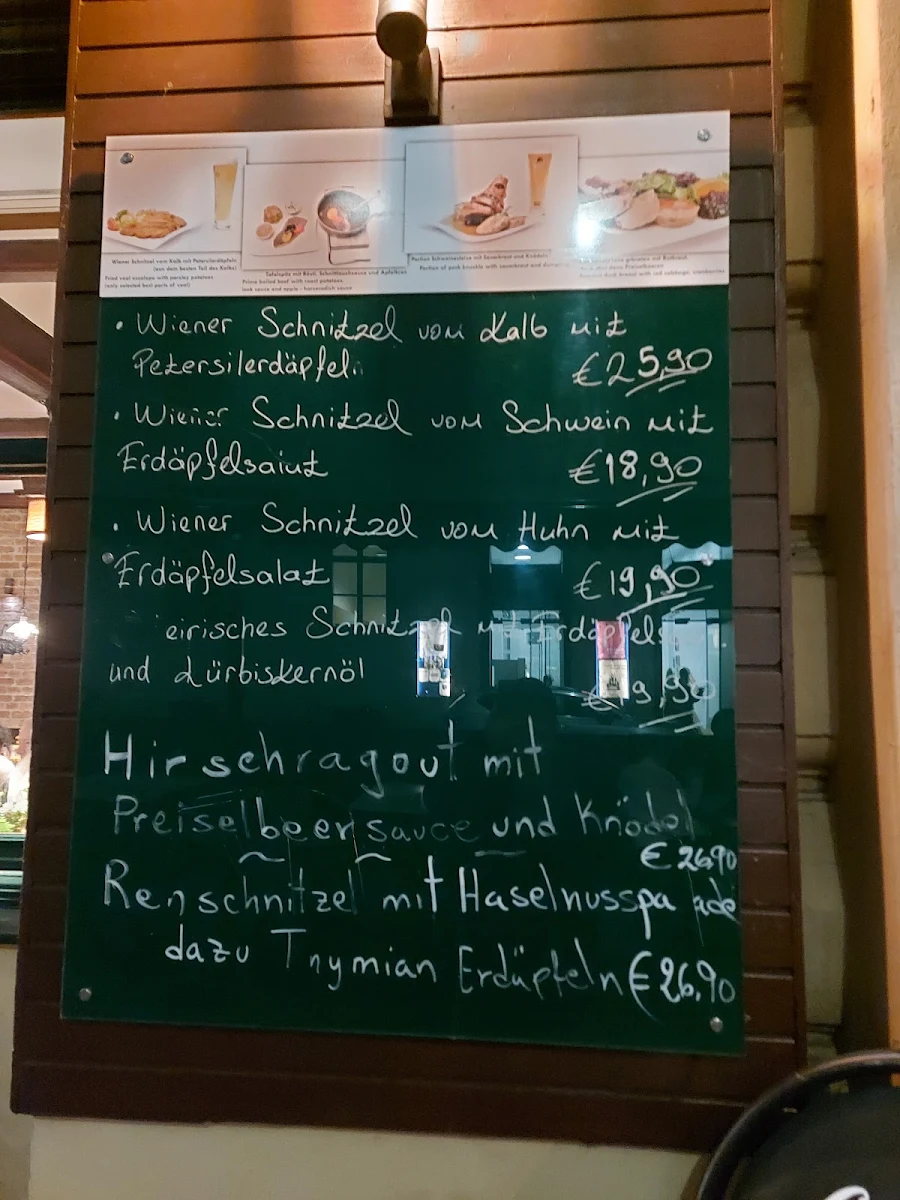 Wiener Schnitzel vom Kalb mit Petersilerdäpfeln
(aus dem besten Teil des Kalbs)
Fried veal escalope with parsley potatoes
(only selected best parts of veal)
Tafelspitz mit Rösti, Schnittlauchsauce und Apfelkren
Prime boiled beef with roast potatoes,
leek sauce and apple - horseradish sauce
Portion Schweinsstelze mit Sauerkraut und Knödeln
Portion of pork knuckle with sauerkraut and
mit Rotkraut,
Preiselbeeren
duck breast with red cabbage, cranberries
• Wiener Schnitzel vom Kalb mit
Petersilerdäpfeln €25,90
• Wiener Schnitzel vom Schwein mit
Erdäpfelsalat €18,90
• Wiener Schnitzel vom Huhn mit
Erdäpfelsalat €19,90
eirisches Schnitzel mit Erdäpfels
und Kürbiskernöl €19,90
Hirschragout mit
Preiselbeersauce und Knödel
€ 26,90
Renschnitzel mit Haselnusspa ade
dazu Thymian Erdäpfeln € 26,90